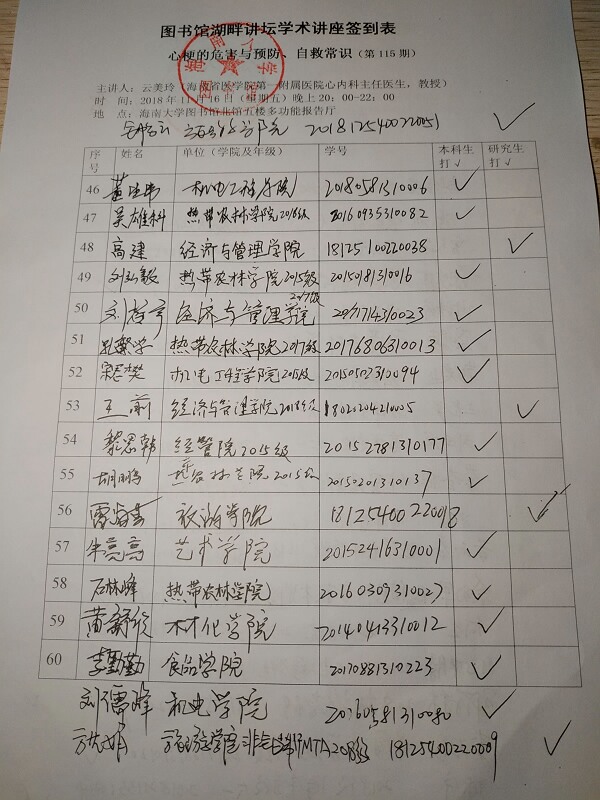 图书馆湖畔讲坛学术讲座签到表
心梗的危害与预防、自救常识（第 115 期）
主讲人：云美玲（海南省医学院第一附属医院心内科主任医生，教授）
时 间：2018 年 11 月 16 日（星期五）晚上 20：00-22：00
地 点：海南大学图书馆北馆五楼多功能报告厅
学院 201812540022051 ✓
序号 姓名 单位（学院及年级） 学号 本科生打√ 研究生打√
46 董 机电工程学院 20180581310006 ✓
47 吴雄科 热带农林学院2016级 20160935310082 ✓
48 高建 经济与管理学院 18125100220038 ✓
49 刘弘毅 热带农林学院2015级 20150181310016 ✓
50 刘 经济与管理学院 2017级 20171714310023 ✓
51 学 热带农林学院2017级 20176806310013 ✓
52 樊 机电工程学院2015级 20150502310094 ✓
53 王前 经济与管理学院2018级 18020204210005 ✓
54 黎思韩 经管院2015级 20152781310177 ✓
55 胡鹏 热农林学院2015级 20150201310137 ✓
56 雷 旅游学院 18125400220018 ✓
57 朱亮亮 艺术学院 20152416310001 ✓
58 石林峰 热带农林学院 20160309310027 ✓
59 黄 材化学院 20140413310012 ✓
60 李勤勤 食品学院 20170881310223 ✓
刘儒峰 机电学院 20160581310080 ✓
旅游学院 MTA2018级 18125400220009 ✓